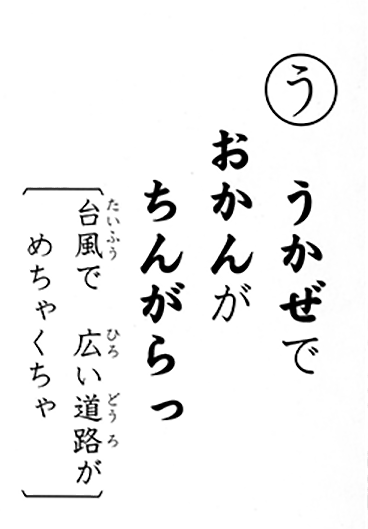 う
うかぜで
おかんが
ちんがらっ
台風で 広い道路が
めちゃくちゃ
たいふう
ひろ
どうろ